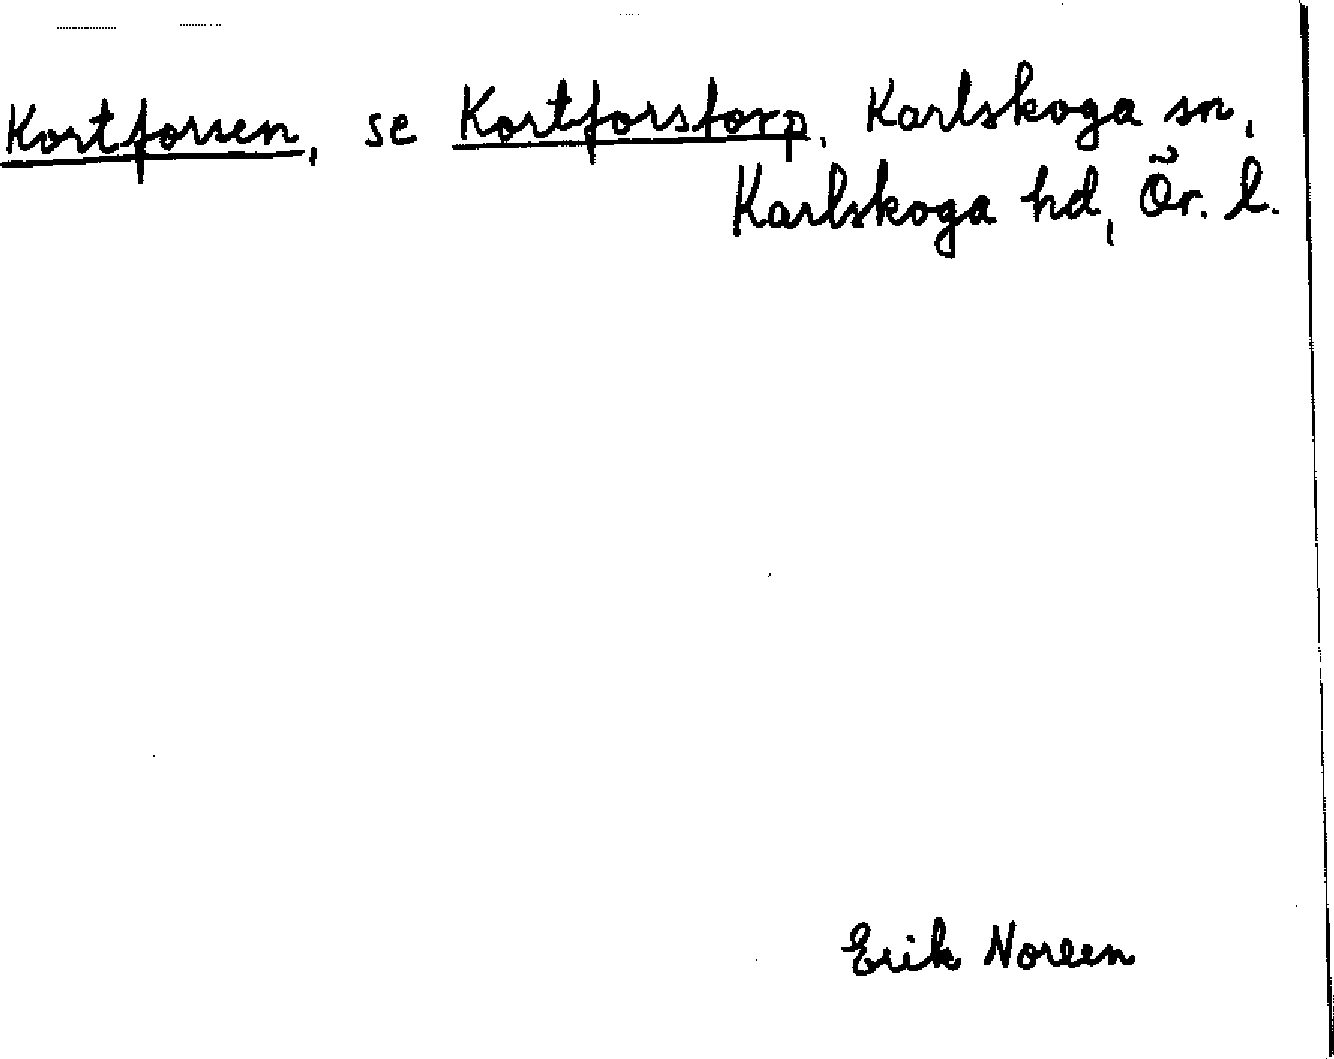 Kortforsen, se Kortforstorp, Karlskoga sn,
Karlskoga hd, Ör. l.
Erik Noreen